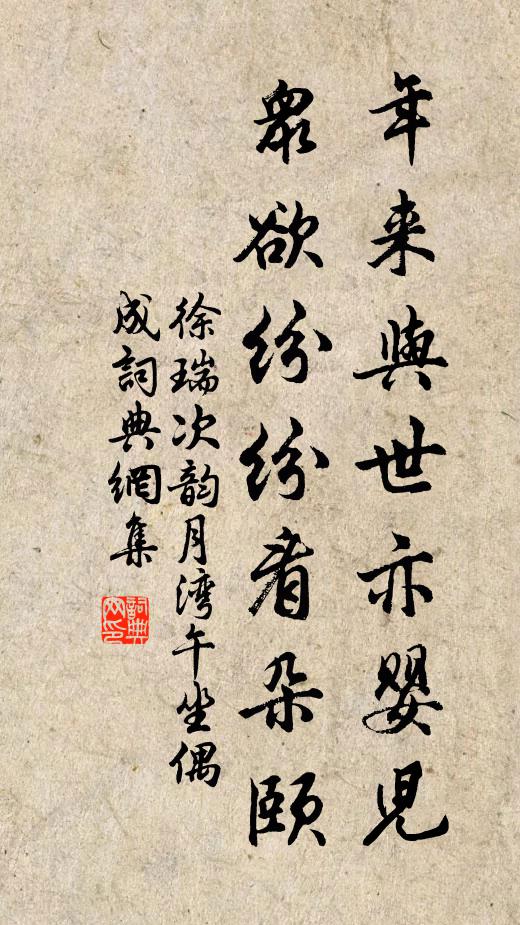 年来與世亦嬰児
衆欲紛紛看朵頤
徐瑞次韵月湾午坐偶
成詞典網集
詞典
网印